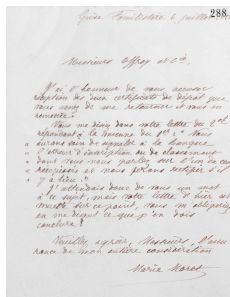 288
Guise Familistère 6 juillet
Messieurs Offroy et Cie
J'ai l'honneur de vous accuser
réception de deux certificats de dépôt que
vous venez de me retourner et vous en
remercie.
Vous me disiez dans votre lettre du
répondant à la mienne du 1er : "Nous
aurons soin de signaler à la Banque
l'erreur d'inscription ou de
dont vous nous parlez sur l'un de ces
récépissés et nous ferons rectifier s'il
y a lieu."
J'attendais donc de vous un mot
à ce sujet, mais votre lettre d'hier est
muette sur ce point, vous m'obligeriez
en me disant ce que j'en dois
conclure ?
Veuillez, agréer, Messieurs, l'assu
rance de mon entière considération
Marie Moret